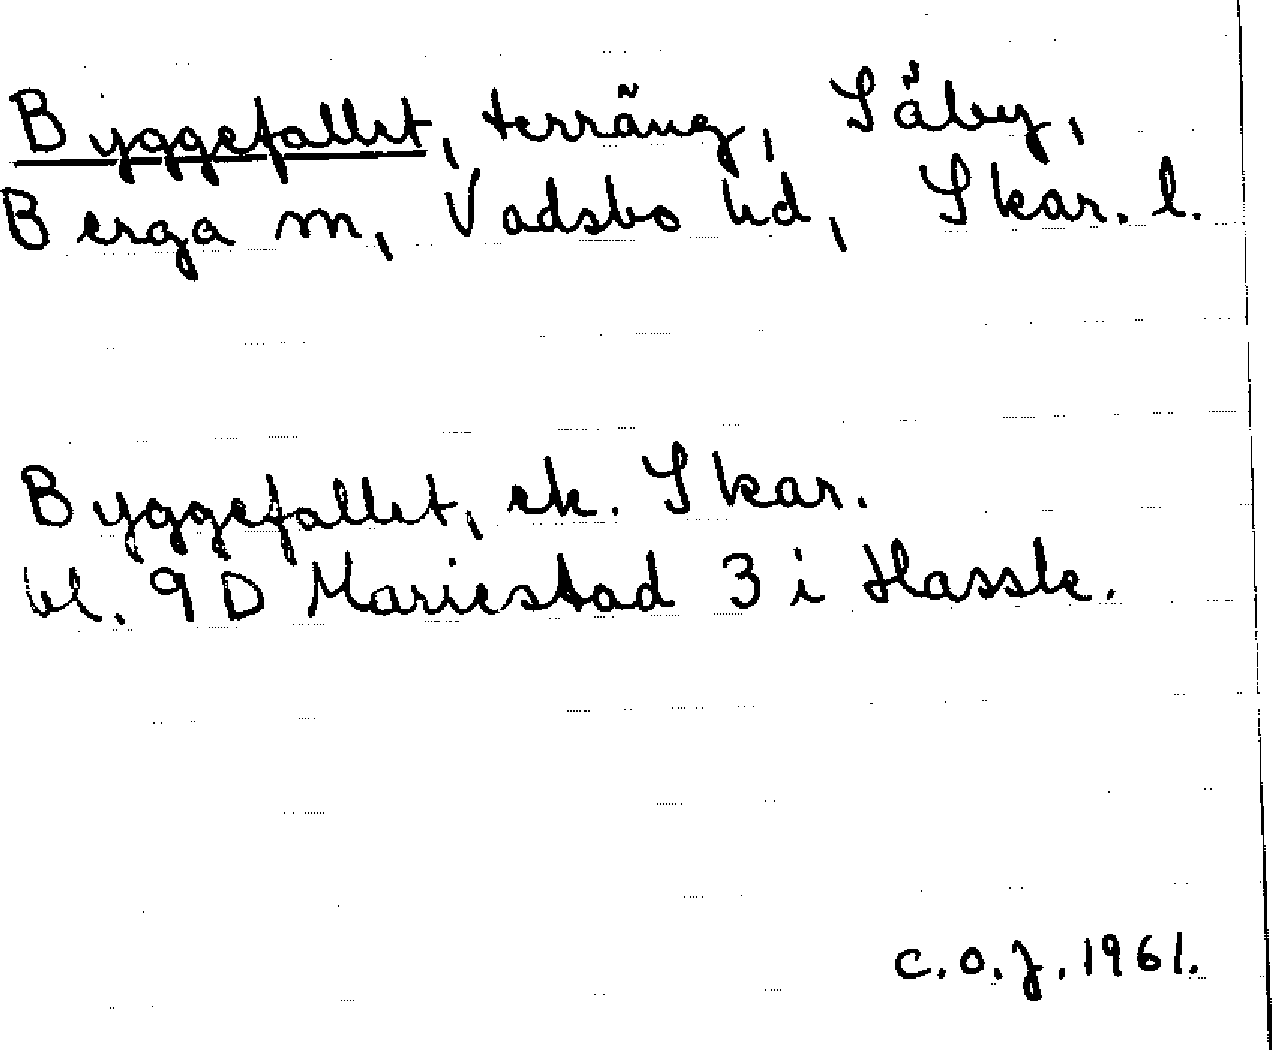 Byggefallet, terräng, Säby,
Berga sn, Vadsbo hd, Skar. l.
Byggefallet, ek. Skar.
bl. 9 D Mariestad 3 i Hassle.
C.O.J. 1961.